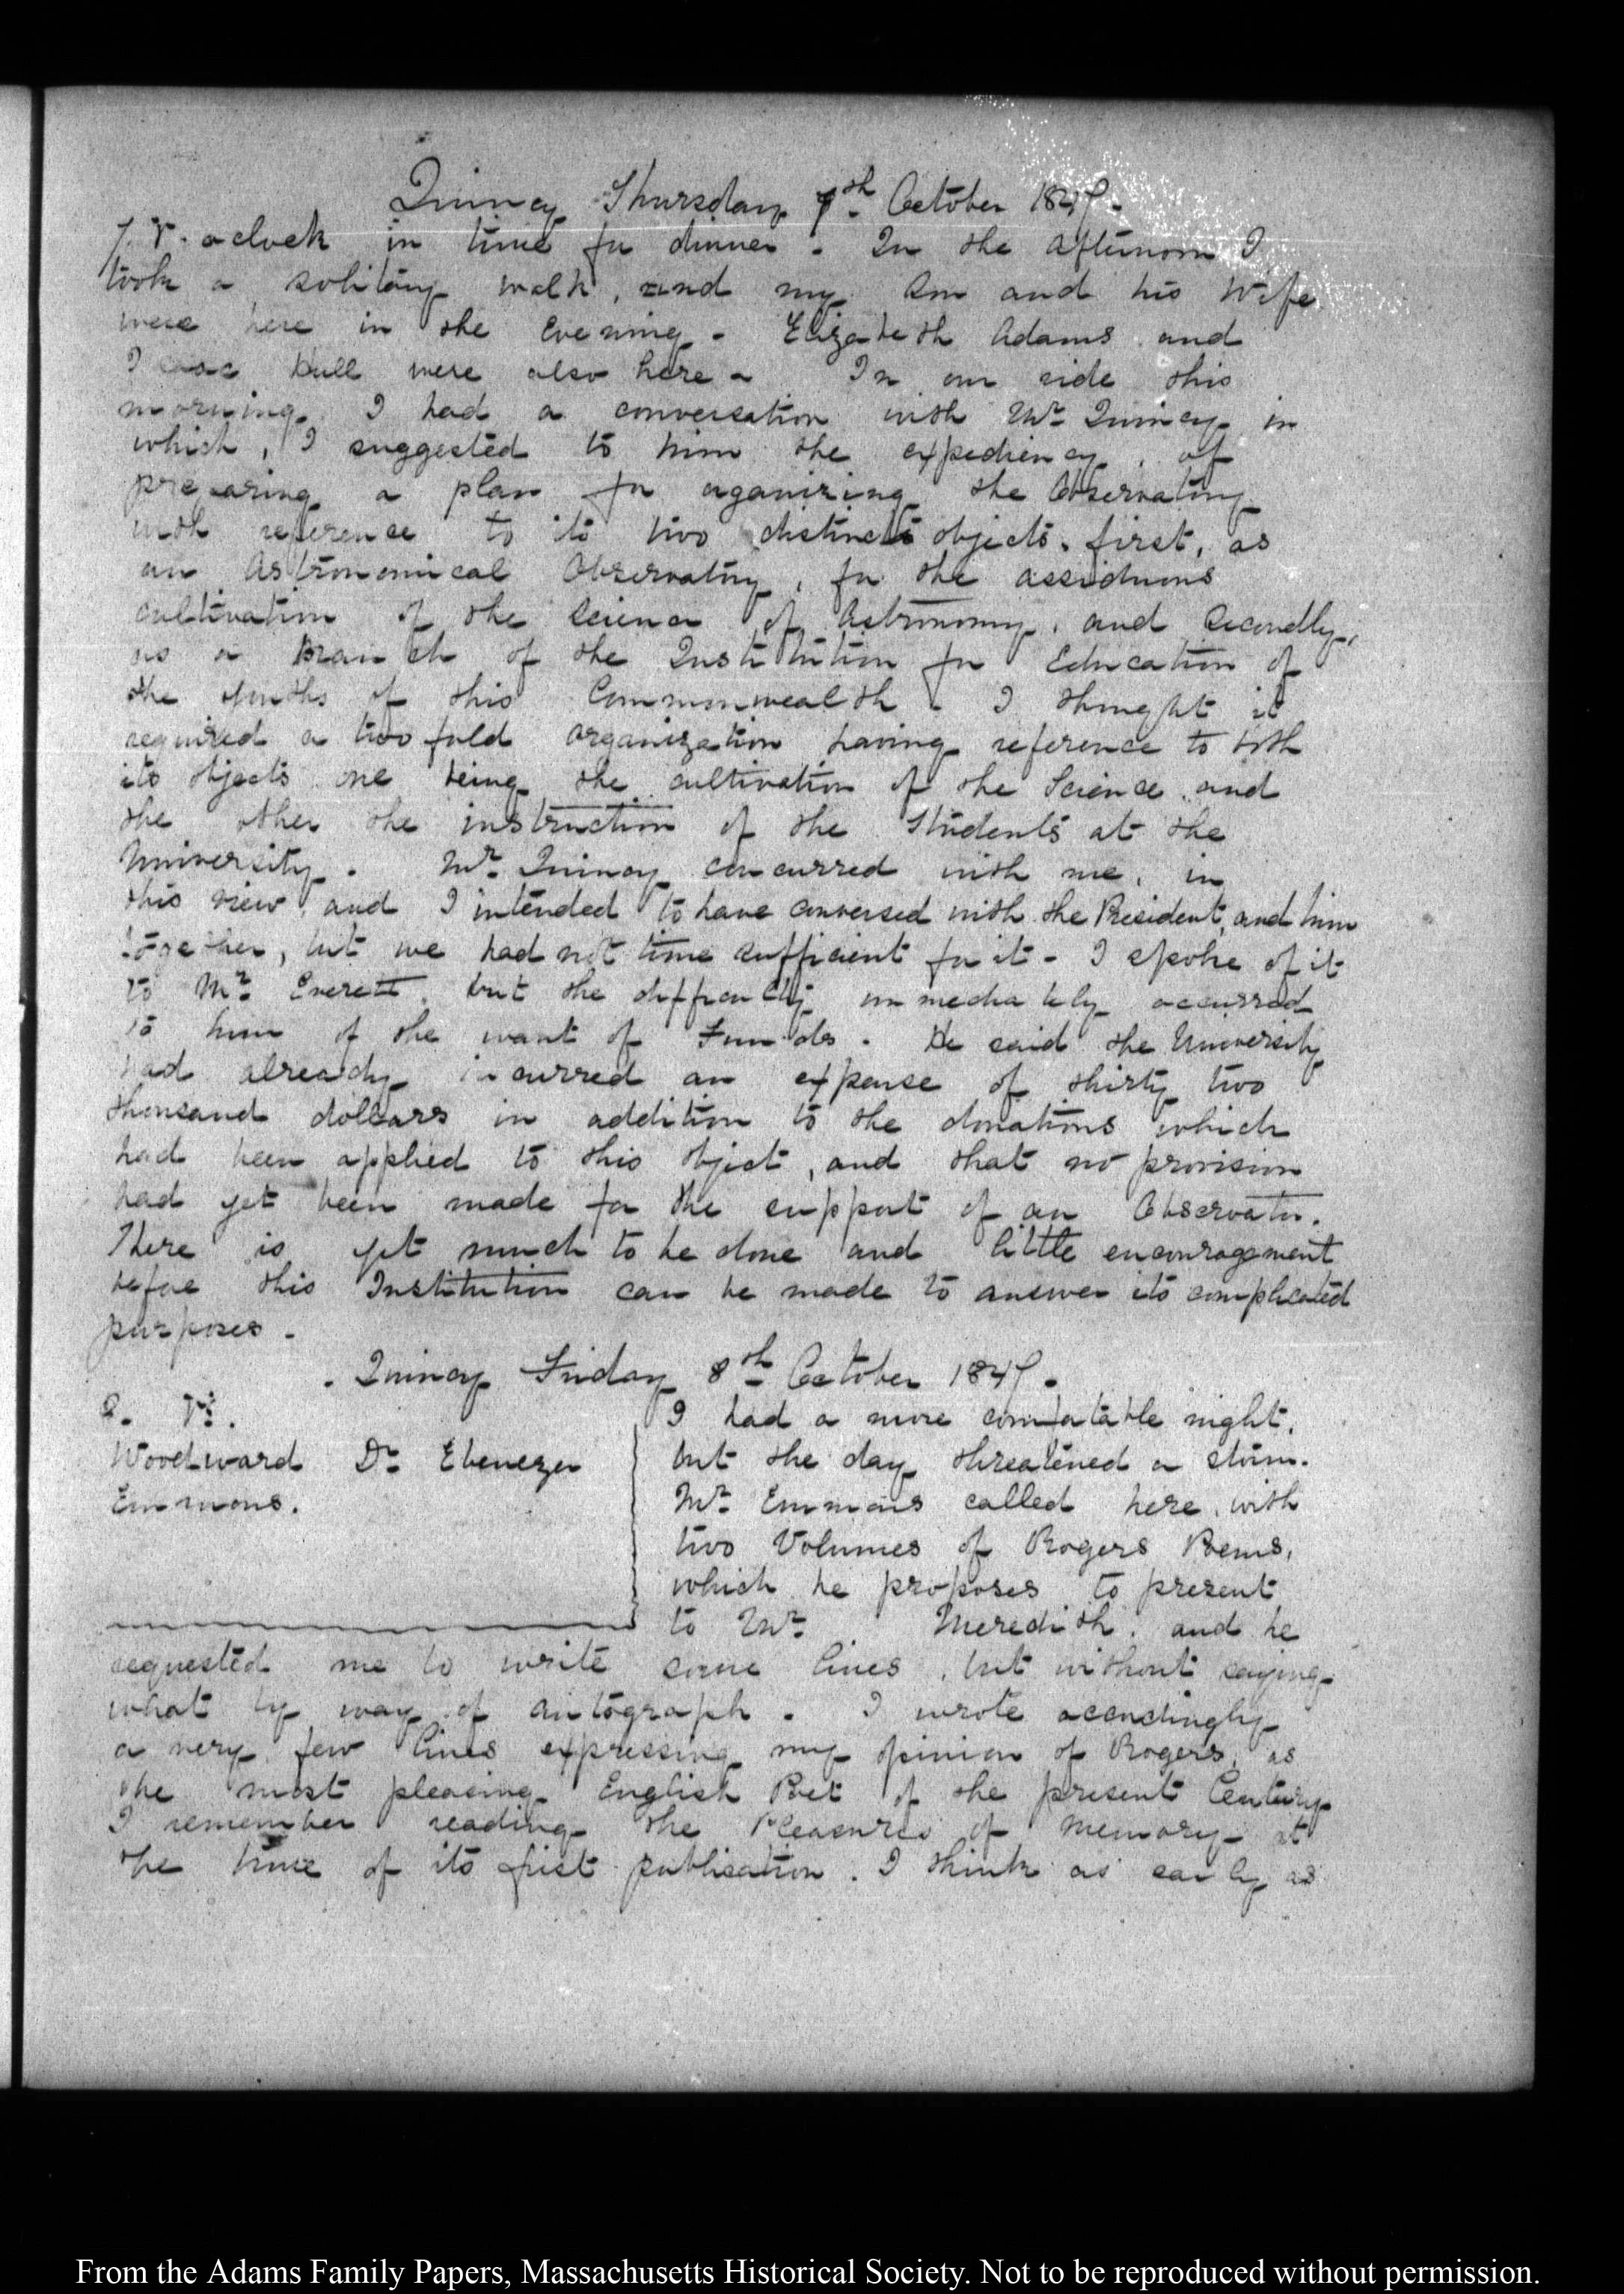 Quincy Thursday 7th October 1847.
oclock in time for dinner. In the afternoon I
took a solitary walk, and my Son and his Wife
were here in the Evening. Elizabeth Adams and
Isaac Hull were also here. In our ride this
morning I had a conversation with Mr Quincy in
which, I suggested to him the expediency, of
preparing a plan for organizing the Observatory
with reference to its two distinct objects. first, as
an Astronomical Observatory, for the assiduous
cultivation of the Science of Astronomy, and Secondly,
as a Branch of the Institution for Education of
the youths of this Commonwealth. I thought it
required a two fold organization having reference to both
its objects one being the cultivation of the Science and
the other the instruction of the Students at the
University. Mr Quincy concurred with me, in
this view, and I intended to have conversed with the President, and him
together, but we had not time sufficient for it - I spoke of it
to Mr Everett. but the difficulty immediately occurred
to him of the want of Funds. He said the University
had already incurred an expense of thirty two
thousand dollars in addition to the donations which
had been applied to this object, and that no provision
had yet been made for the support of an Observator.
There is yet much to be done and little encouragement
before this Institution can be made to answer its complicated
purposes -
Quincy Friday 8th October 1847.
Woodward Dr Ebenezer
Emmons.
I had a more comfortable night.
but the day threatened a storm.
Mr Emmons called here, with
two Volumes of Rogers Poems,
which he proposes to present
to Mr Meredith. and he
requested me to write some lines, but without saying
what by way of autograph. I wrote accordingly
a very few lines expressing my opinion of Rogers, as
the most pleasing English Poet of the present Century
I remember reading the Pleasures of Memory at
the time of its first publication. I think as early as
From the Adams Family Papers, Massachusetts Historical Society. Not to be reproduced without permission.